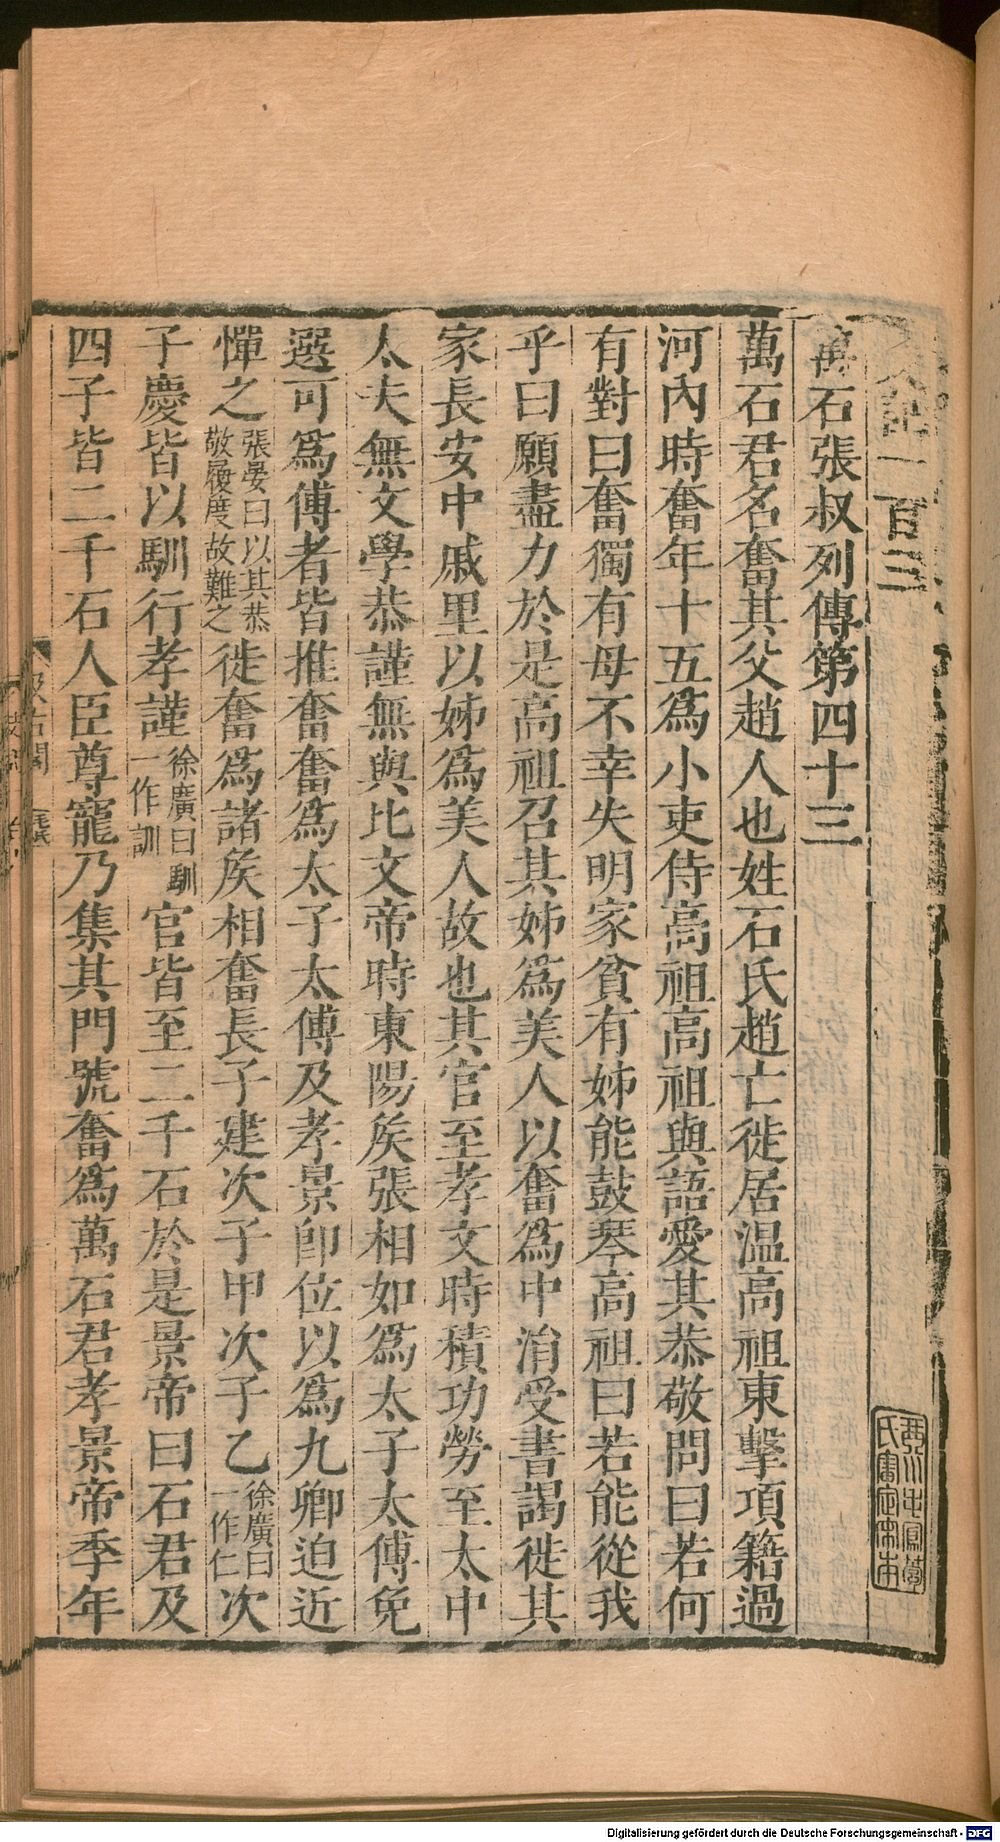 史記一百三
萬石張叔列傳第四十三
萬石君名奮其父趙人也姓石氏趙亡徙居温高祖東擊項籍過
河內時奮年十五爲小吏侍高祖高祖與語愛其恭敬問曰若何
有對曰奮獨有母不幸失明家貧有姊能鼓琴高祖曰若能從我
乎曰願盡力於是高祖召其姊爲美人以奮爲中涓受書謁徙其
家長安中戚里以姊爲美人故也其官至孝文時積功勞至太中
大夫無文學恭謹無與比文帝時東陽矦張相如爲太子太傅免
選可爲傅者皆推奮奮爲太子太傅及孝景卽位以爲九卿迫近
憚之張晏曰以其恭敬履度故難之徙奮爲諸矦相奮長子建次子甲次子乙徐廣曰一作仁次
子慶皆以馴行孝謹徐廣曰馴一作訓官皆至二千石於是景帝曰石君及
四子皆二千石人臣尊寵乃集其門號奮爲萬石君孝景帝季年
汲古閣
毛氏
Digitalisierung gefördert durch die Deutsche Forschungsgemeinschaft - DFG